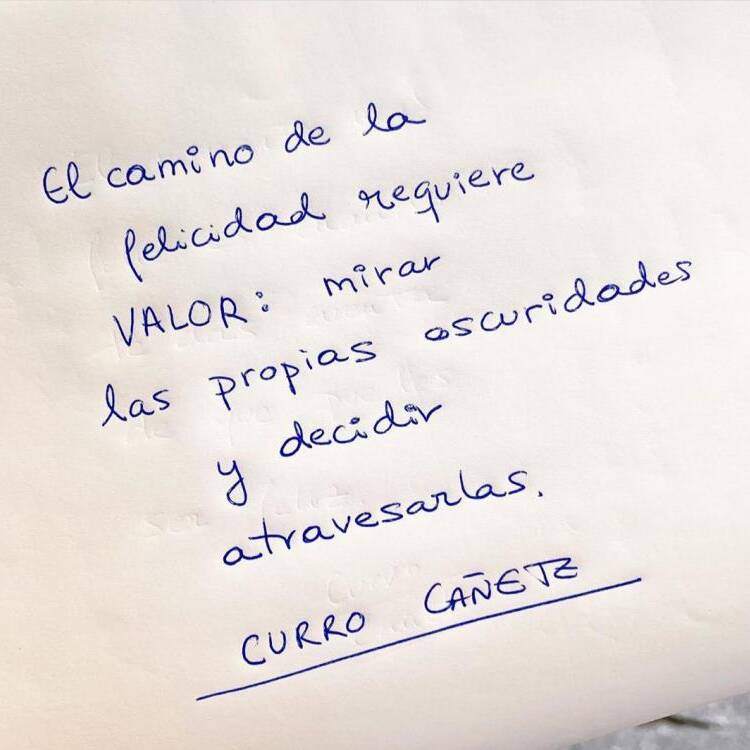 El camino de la
felicidad requiere
VALOR: mirar
las propias oscuridades
y decidir
atravesarlas.
CURRO CAÑETE